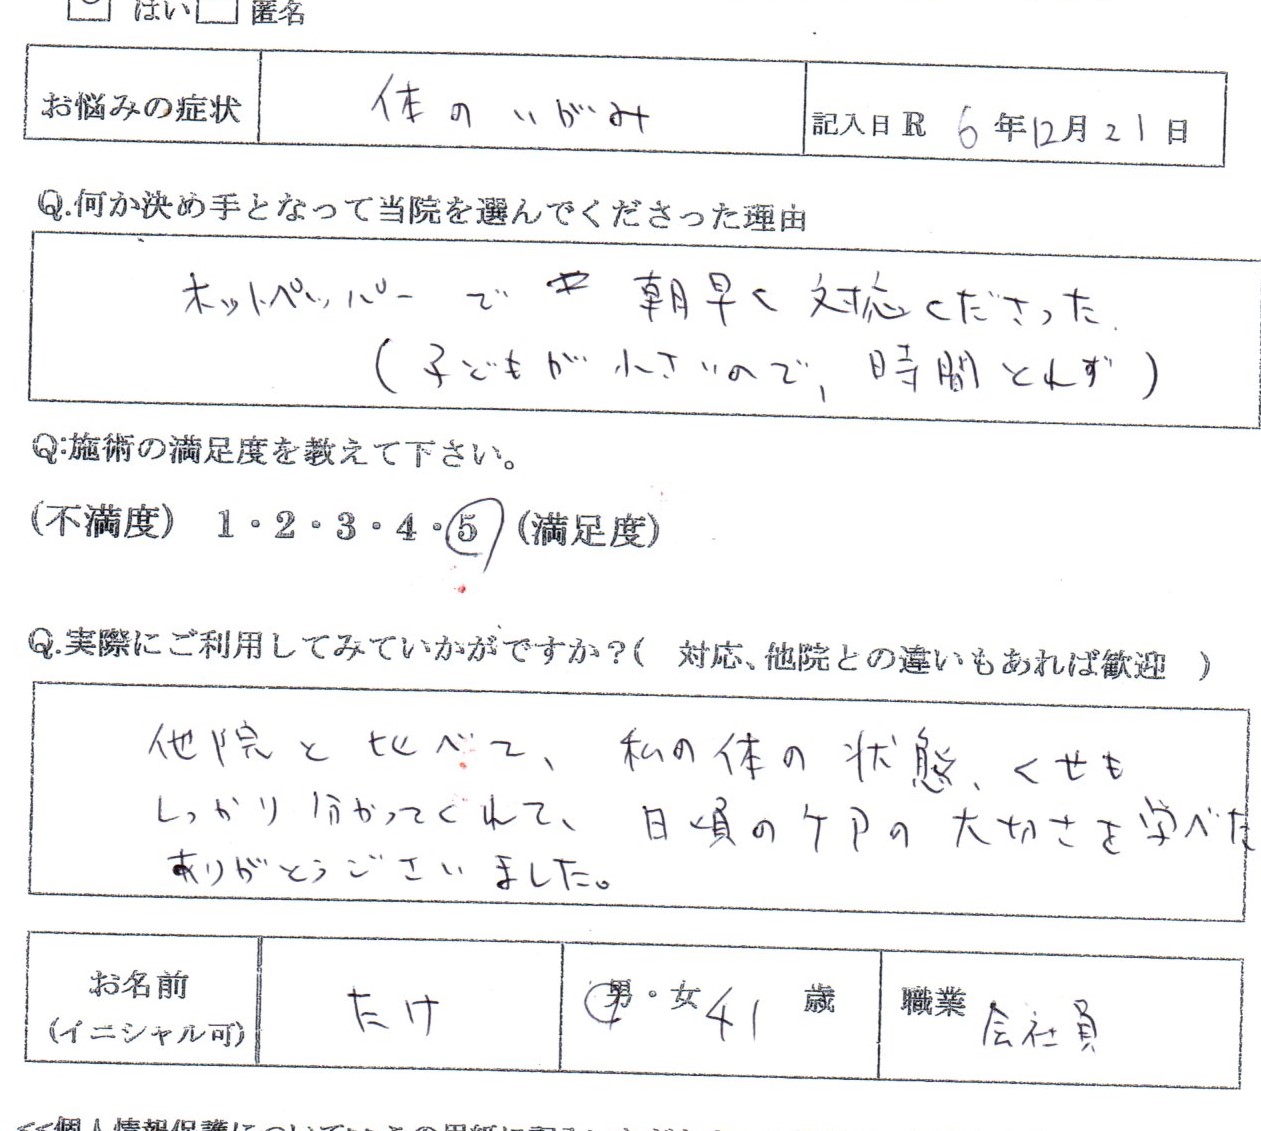 はい 匿名
お悩みの症状 体のいがみ 記入日 R 6年12月21日
Q.何か決め手となって当院を選んでくださった理由
ホットペッパーで 朝早く対応くださった.
(子どもが小さいので, 時間とれず)
Q:施術の満足度を教えて下さい。
(不満度) 1・2・3・4・5 (満足度)
Q.実際にご利用してみていかがですか?( 対応、他院との違いもあれば歓迎 )
他院と比べて、私の体の状態、くせも
しっかり分かってくれて、日頃のケアの大切さを学べた
ありがとうございました。
お名前 たけ 男・女 41 歳 職業 会社員
(イニシャル可)